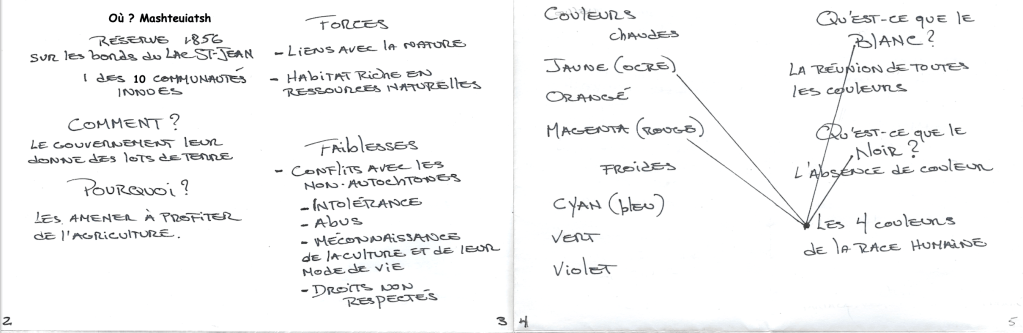 Où ? Mashteuiatsh
RÉSERVE 1856
SUR LES BORDS DU LAC-ST-JEAN
1 DES 10 COMMUNAUTÉS
INNUES
COMMENT ?
LE GOUVERNEMENT LEUR
DONNE DES LOTS DE TERRE
POURQUOI ?
LES AMENER À PROFITER
DE L'AGRICULTURE.
2
FORCES
- LIENS AVEC LA NATURE
- HABITAT RICHE EN
RESSOURCES NATURELLES
FAIBLESSES
- CONFLITS AVEC LES
NON-AUTOCHTONES
- INTOLÉRANCE
- ABUS
- MÉCONNAISSANCE
DE LA CULTURE ET DE LEUR
MODE DE VIE
- DROITS NON
RESPECTÉS
3
COULEURS
CHAUDES
JAUNE (OCRE)
ORANGÉ
MAGENTA (ROUGE)
FROIDES
CYAN (bleu)
VERT
VIOLET
4
QU'EST-CE QUE LE
BLANC ?
LA RÉUNION DE TOUTES
LES COULEURS
QU'EST-CE QUE LE
NOIR ?
L'ABSENCE DE COULEUR
LES 4 COULEURS
DE LA RACE HUMAINE
5